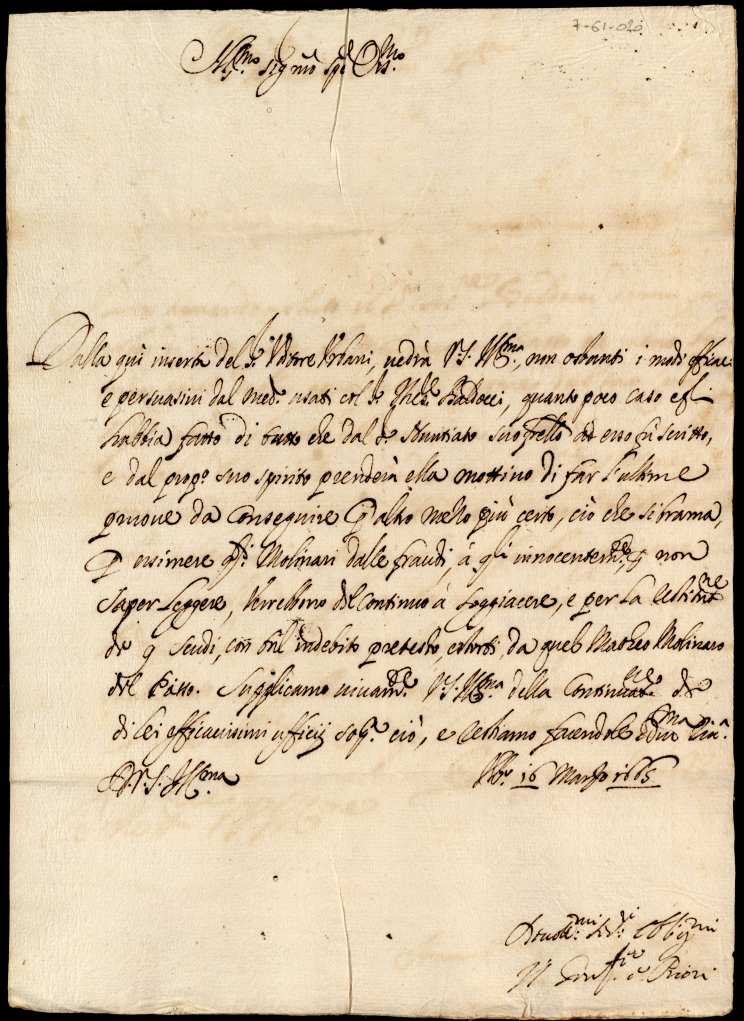 7-61-020
Ill.mo Sig.re
Dalla quì inserta del S.r Uditore Urbani, uedrà V.S. Ill.ma, non ostanti i modi efficaci
e persuasiui dal med.o usati col S.r Baldocci, quanto poco caso egli
habbia fatto di tutto che dal d.o Nuntiato ad esso scritto,
e dal prop.o suo spirito prenderà ella mottiuo di far l'ultime
pruoue da Conseguire altro mezzo più certo, ciò che si brama,
P esimere Molinari dalle fraudi, à q.li innocentem.te non
saper leggere, uerrebbono del Continuo à soggiacere, e per la restitut.ne
de 9 scudi, con indebito pretesto, estorti, da quel Matteo Molinaro
del Piano. Supplicamo uiuam.te V.S. Ill.ma della Continuat.ne de
di lei efficacissimi ufficij sop.a ciò, e restiamo facendole
D.V.S. Ill.ma 16 Marzo 1665
Deuot.mi S.ri Obbig.mi
e Priori